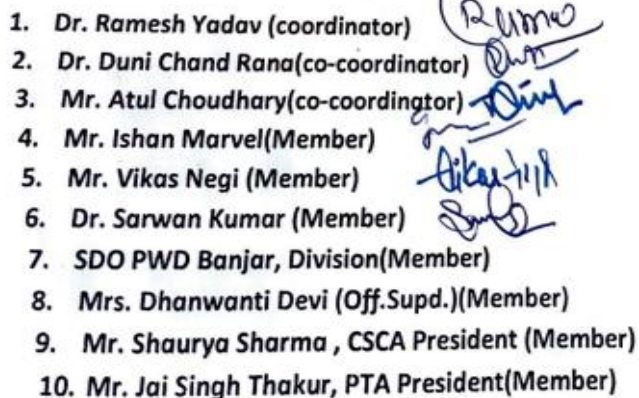 1. Dr. Ramesh Yadav (coordinator)
2. Dr. Duni Chand Rana(co-coordinator)
3. Mr. Atul Choudhary(co-coordinator)
4. Mr. Ishan Marvel(Member)
5. Mr. Vikas Negi (Member)
6. Dr. Sarwan Kumar (Member)
7. SDO PWD Banjar, Division(Member)
8. Mrs. Dhanwanti Devi (Off.Supd.)(Member)
9. Mr. Shaurya Sharma , CSCA President (Member)
10. Mr. Jai Singh Thakur, PTA President(Member)